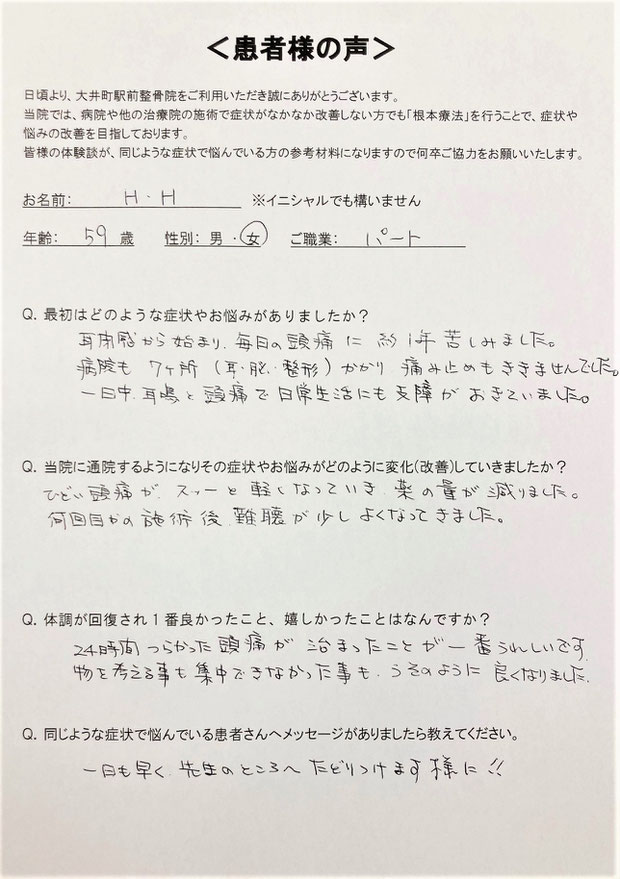 ＜患者様の声＞
日頃より、大井町駅前整骨院をご利用いただき誠にありがとうございます。
当院では、病院や他の治療院の施術で症状がなかなか改善しない方でも「根本療法」を行うことで、症状や
悩みの改善を目指しております。
皆様の体験談が、同じような症状で悩んでいる方の参考材料になりますので何卒ご協力をお願いいたします。
お名前： H・H ※イニシャルでも構いません
年齢： 59 歳 性別：男・女 ご職業： パート
Q. 最初はどのような症状やお悩みがありましたか？
耳閉感から始まり、毎日の頭痛に約1年苦しみました。
病院も7ヶ所（耳・脳・整形）かかり、痛み止めもききませんでした。
一日中、耳鳴と頭痛で日常生活にも支障がおきていました。
Q. 当院に通院するようになりその症状やお悩みがどのように変化(改善)していきましたか？
ひどい頭痛が、スゥーと軽くなっていき、薬の量が減りました。
何回目かの施術後、難聴が少しよくなってきました。
Q. 体調が回復され１番良かったこと、嬉しかったことはなんですか？
24時間つらかった頭痛が治まったことが一番うれしいです。
物を考える事も集中できなかった事も、うそのように良くなりました。
Q. 同じような症状で悩んでいる患者さんへメッセージがありましたら教えてください。
一日も早く、先生のところへたどりつけます様に!!